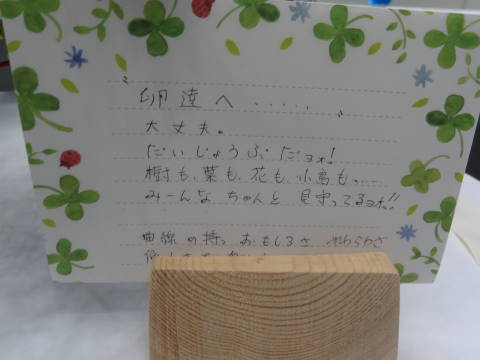 〝卵達へ.....〟
大丈夫。
だいじょうぶだヨォ!
樹も、葉も、花も、小鳥も.....
みーんな ちゃんと 見守ってるヨォ!!
曲線の持つ おもしろさ やわらかさ